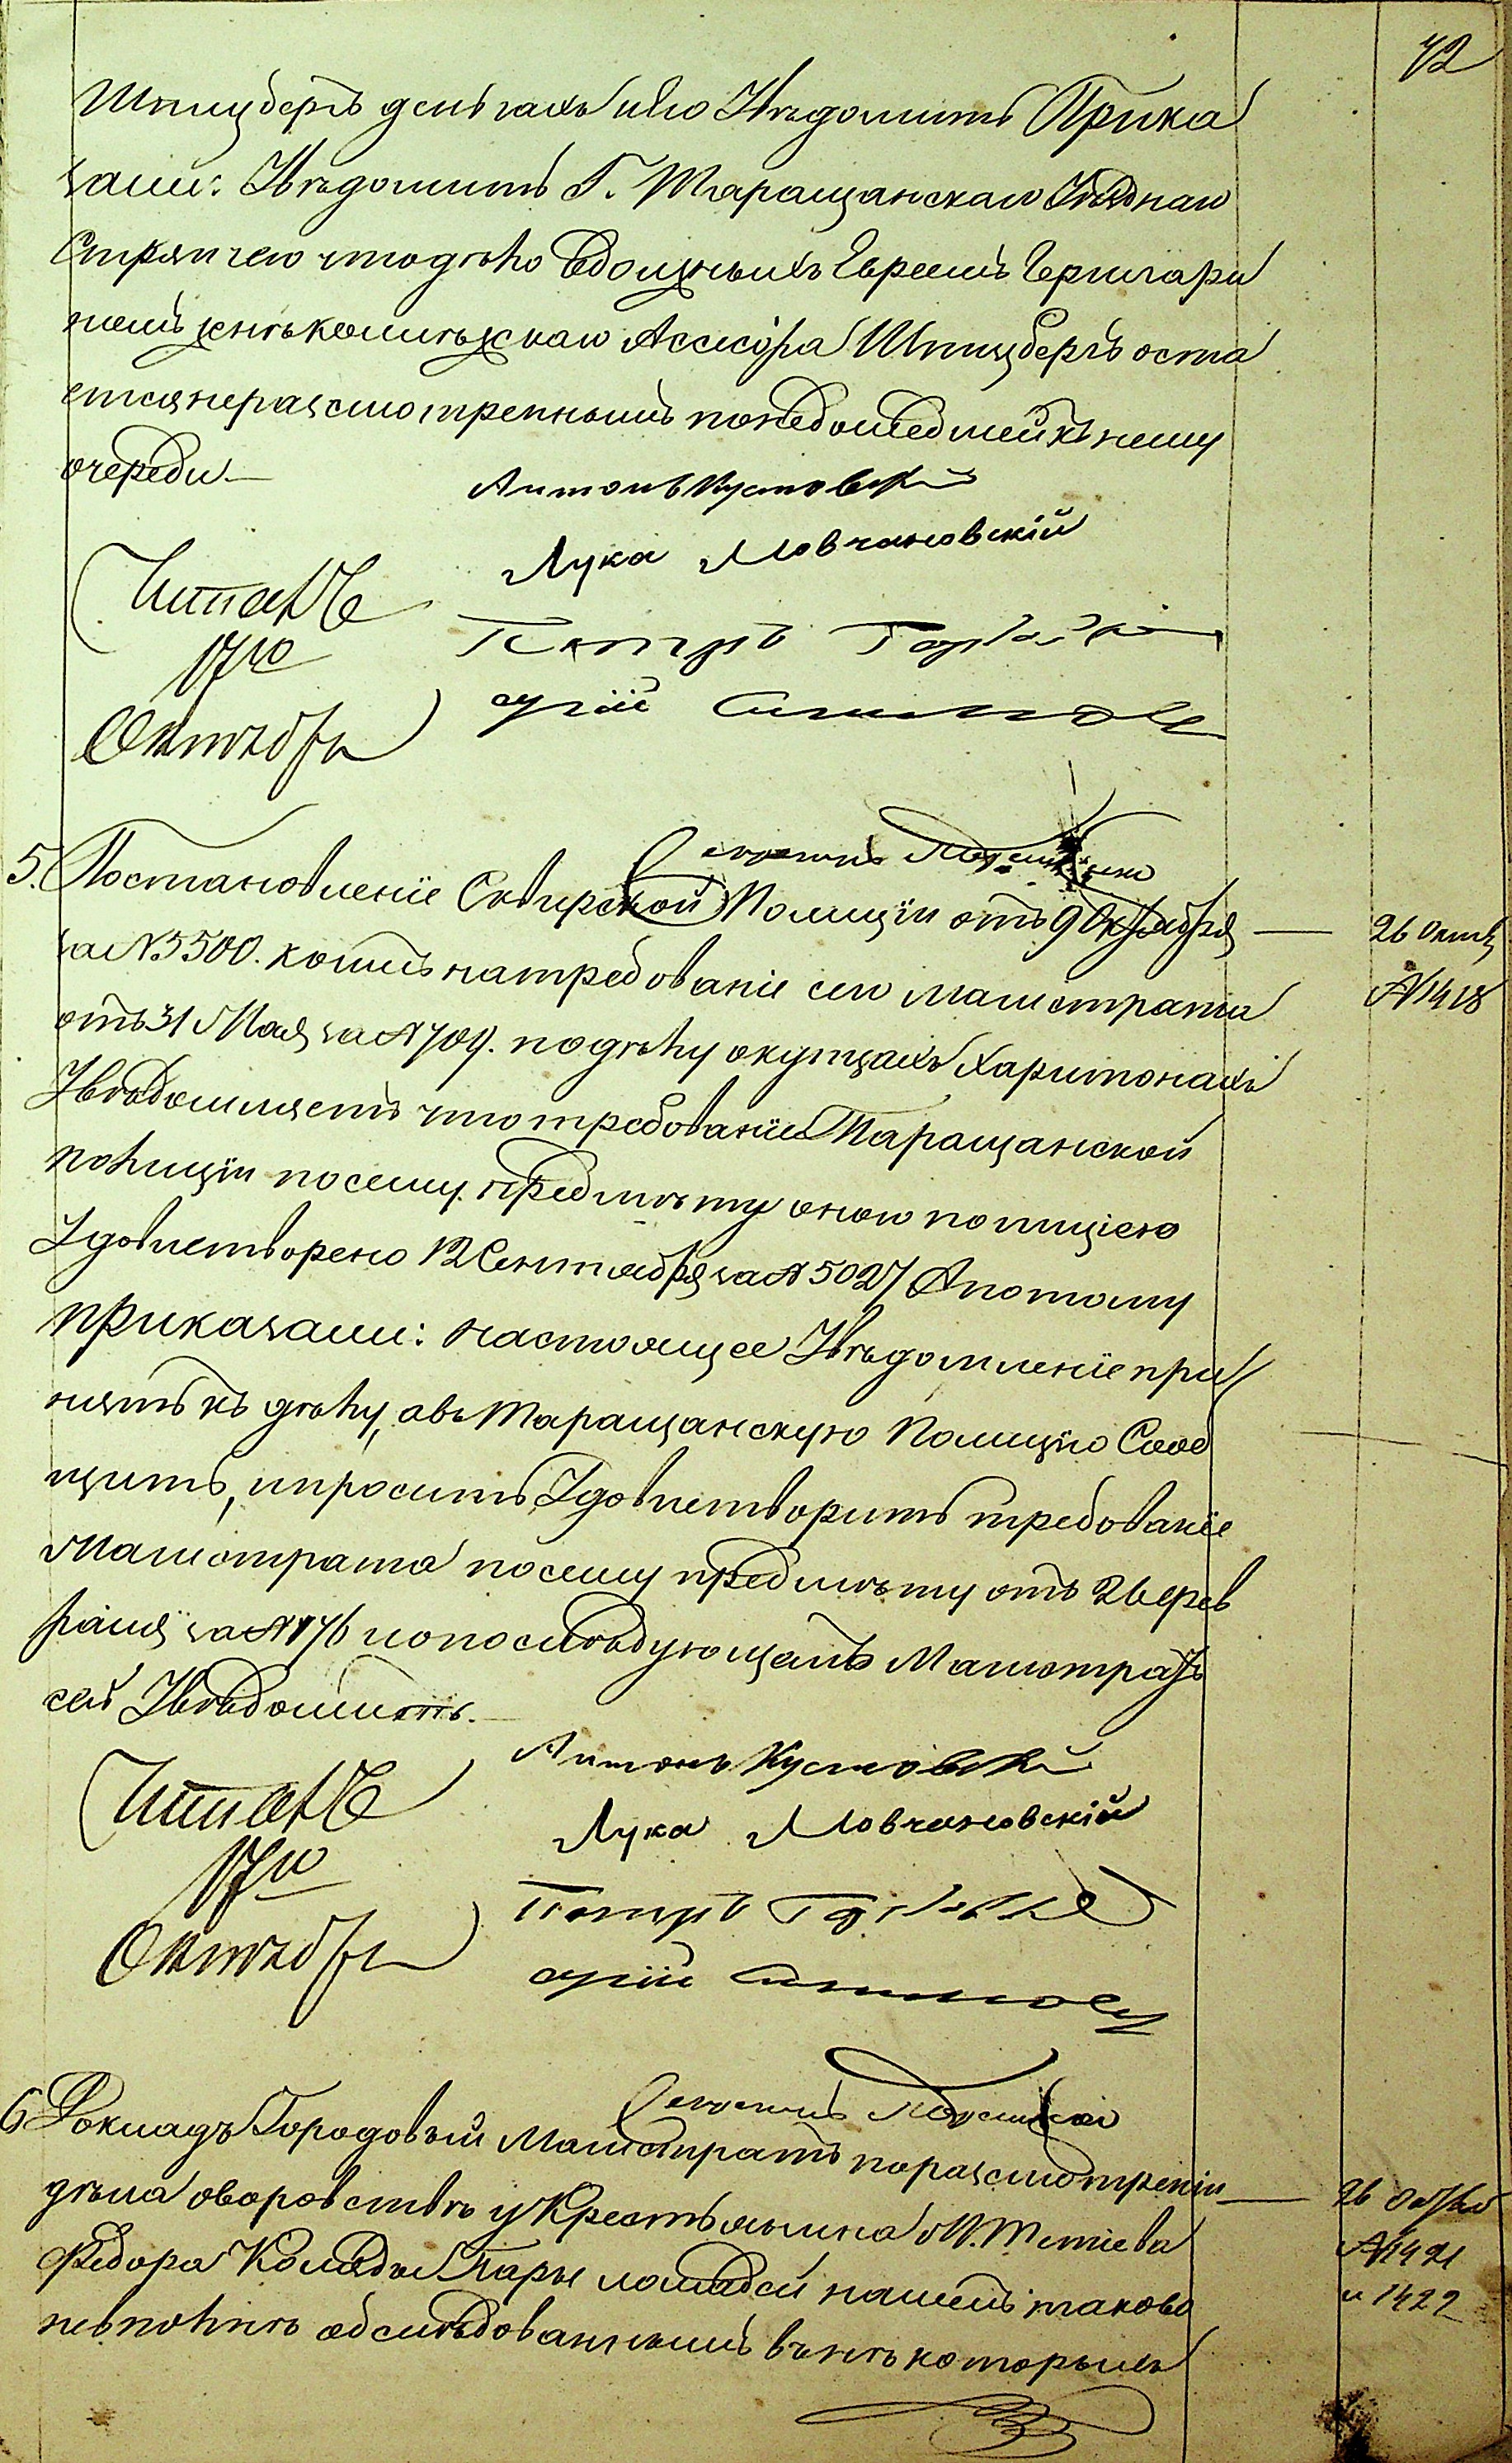 72
Шпицберъ деньгахъ и Его Увѣдомить Прика
зали: Увѣдомить Г. Таращанскаго Уѣзднаго
Стряпчего что дѣло о должныхъ Евреемъ
женѣ Колежскаго Ассесора Шпицбергъ оста
ется неразсмотреннымъ по недошедшей къ нему
очереди.—
Антонъ Кустовскій
Лука Мовчановскій
Читалъ
17го
Октября
Петръ
5. Постановленіе Сквирской Полиціи отъ 9 Октября
за N 5500. коимъ на требованіе сего Магистрата
отъ 31 Мая за N 709. по дѣлу о купцахъ Харитонахъ
Увѣдомляетъ что требованіе Таращанской
полиціи по сему предмѣту оною полиціею
Удовлетворено 12 Сентября за N 5027 А потому
приказали: настоящее Увѣдомленіе при
нять къ дѣлу, а въ Таращанскую Полицію Сооб
щить, и просить Удовлетворить требованіе
Магистрата по сему предмѣту отъ 26 Фев
раля за N 176 и о послѣдующемъ Магистратъ
сей Увѣдомить.—
26 Октяб
N 1418
Антонъ Кустовскій
Лука Мовчановскій
Читалъ
17го
Октября
Петръ
6. Докладъ Городовый Магистратъ по разсмотреніи
дѣла о воровствѣ у Крестьянина М. Тетіева
Федора Коляды Пары лошадей нашелъ таково
не вполнѣ обслѣдованнымъ въ нѣкоторыхъ
26 Октяб
N 1421
и 1422